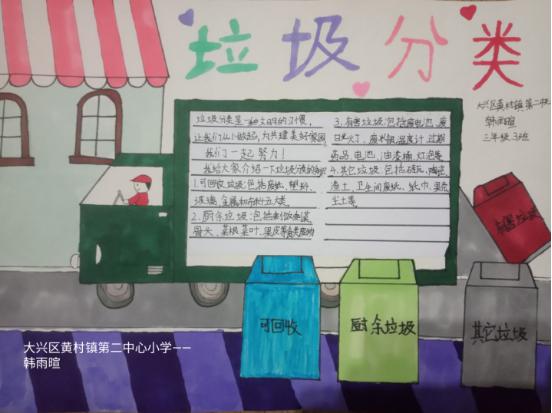 垃圾分类
大兴区黄村镇第二中
韩雨暄
三年级3班
垃圾分类是一种文明的习惯,
让我们从小做起,为共建美好家园,
我们一起努力!
我给大家介绍一下垃圾分类的知识
1.可回收垃圾:包括废纸,塑料,
玻璃,金属和布料五大类.
2.厨余垃圾:包括剩饭剩菜,
骨头、菜根菜叶、果皮等食品废物
3.有害垃圾:包括废电池,废
日光灯,废水银温度计,过期
药品,电池,油漆桶,灯泡等.
4.其它垃圾:包括砖瓦、陶瓷、
渣土,卫生间废纸,纸巾,果壳
尘土等.
有害垃圾
可回收
厨余垃圾
其它垃圾
大兴区黄村镇第二中心小学——
韩雨暄